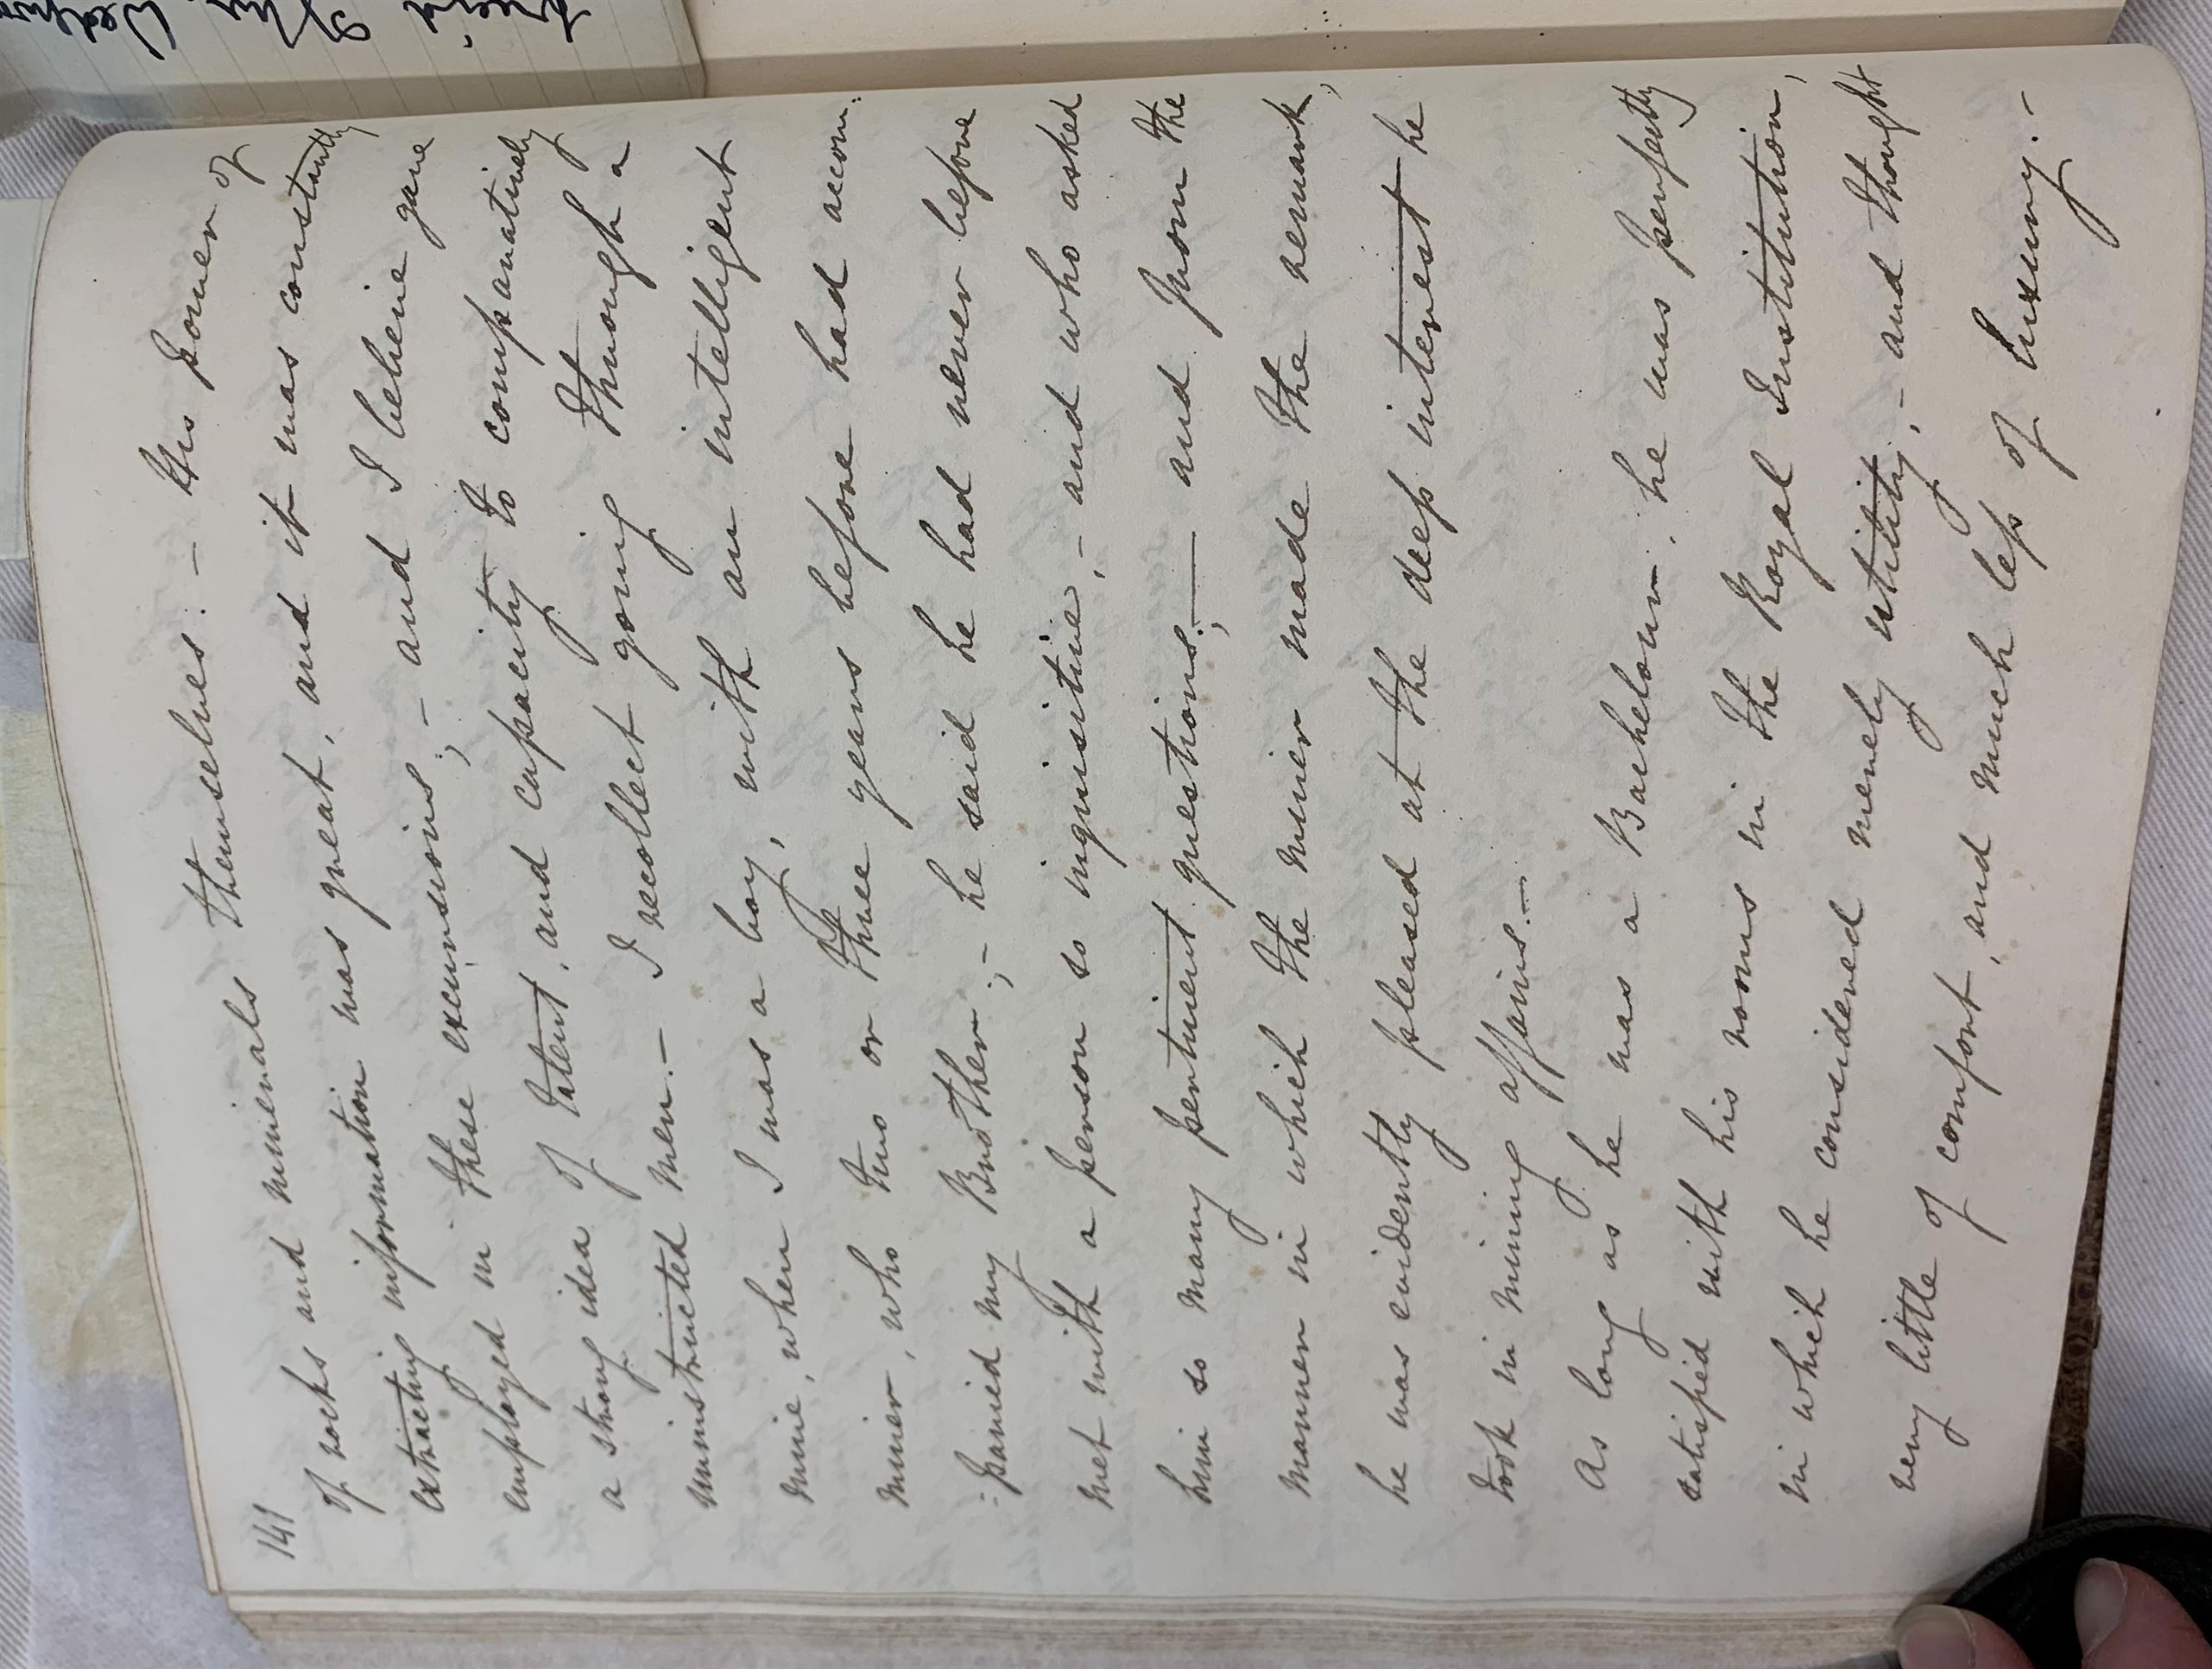 141
of rocks and minerals themselves: – His power of
extracting information was great, and it was constantly
employed in these excursions; – and I believe gave
a strong idea of talent, and capacity to comparatively
uninstructed men. – I recollect going through a
mine, when I was a boy, with an intelligent
miner, who two or three years before had accom:
:panied my Brother; – he said he had never before
met with a person so inquisitive, – and who asked
him so many pertinent questions; – and from the
manner in which the miner made the remark,
he was evidently pleased at the deep interest he
took in mining affairs. –
As long as he was a Bachelour, he was perfectly
satisfied with his rooms in the Royal Institution,
in which he considered merely utility, – and thought
very little of comfort, and much less of luxury. –